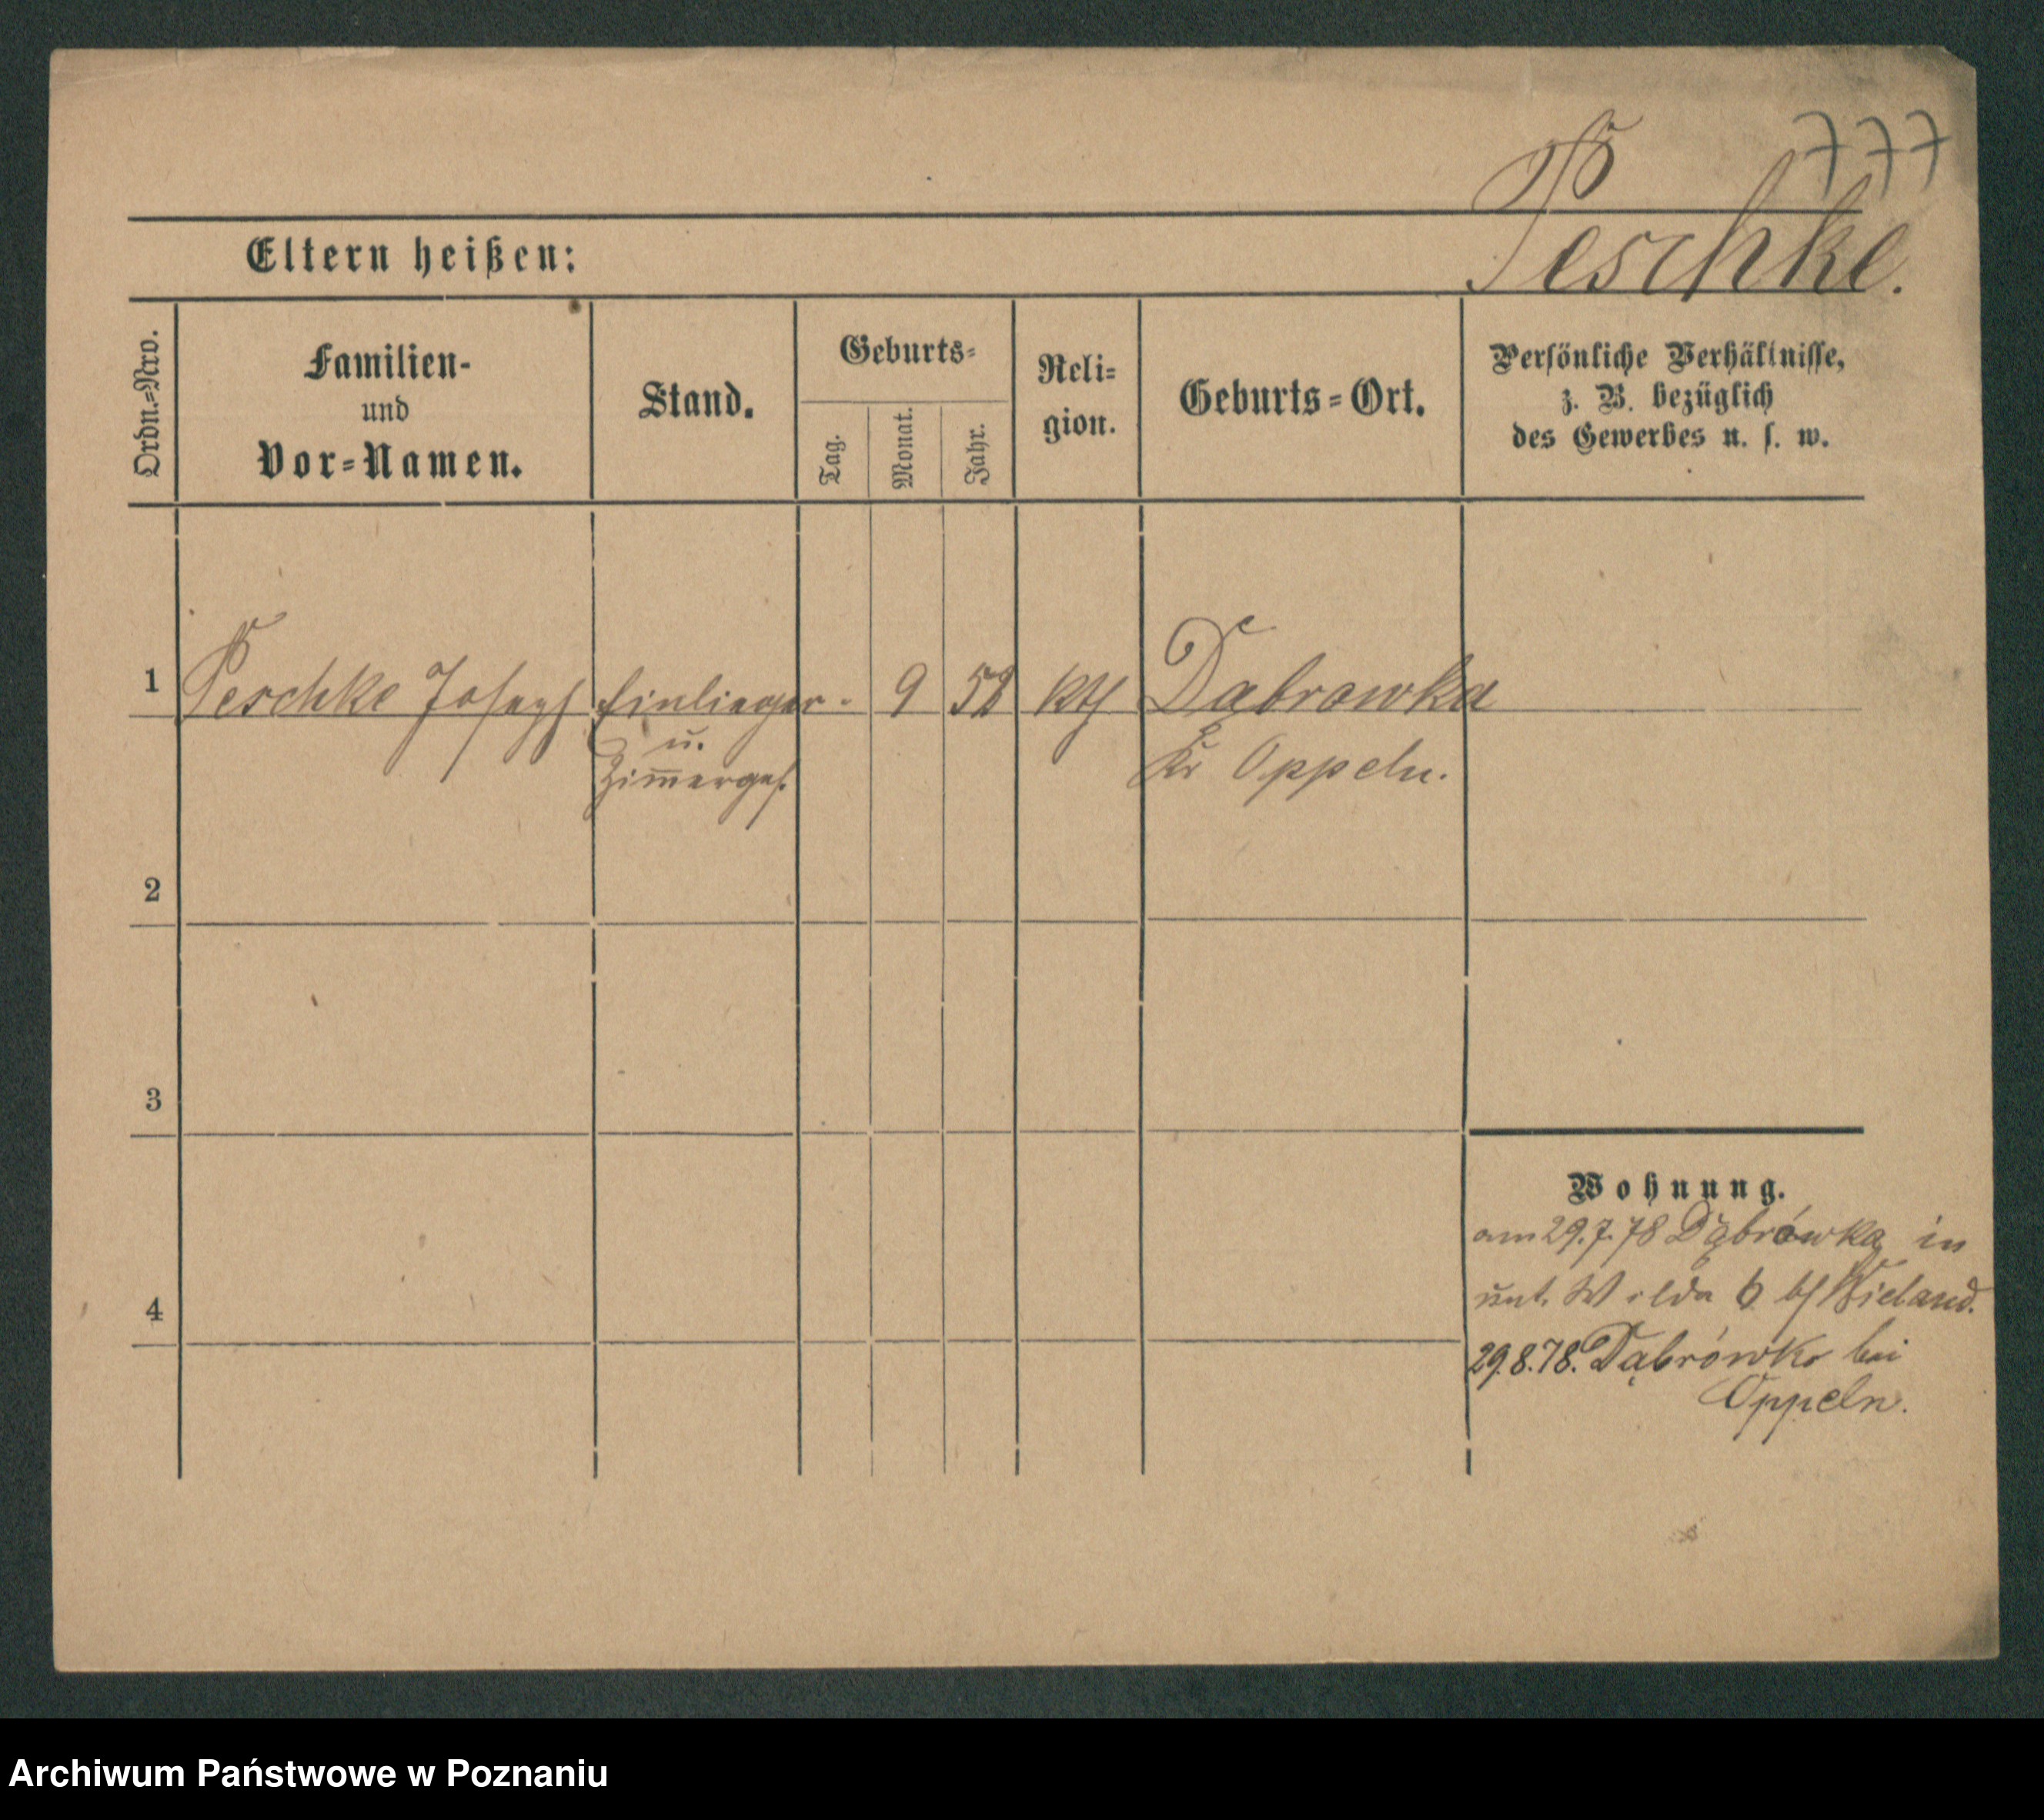 777
Peschke.
Eltern heißen:
Ordn.-Nro.
Familien-
und
Vor-Namen.
Stand.
Geburts-
Tag.
Monat.
Jahr.
Reli-
gion.
Geburts-Ort.
Persönliche Verhältnisse,
z. B. bezüglich
des Gewerbes u. s. w.
1 Peschke Joseph Einlieger - 9 58 kth Dąbrowka
u. Kr Oppeln.
Zim̄erges.
2
3
Wohnung.
am 29.7.78 Dąbrówka in
unt. Wilda 6 bei Wieland.
4
29.8.78. Dąbrówka bei
Oppeln.
Archiwum Państwowe w Poznaniu